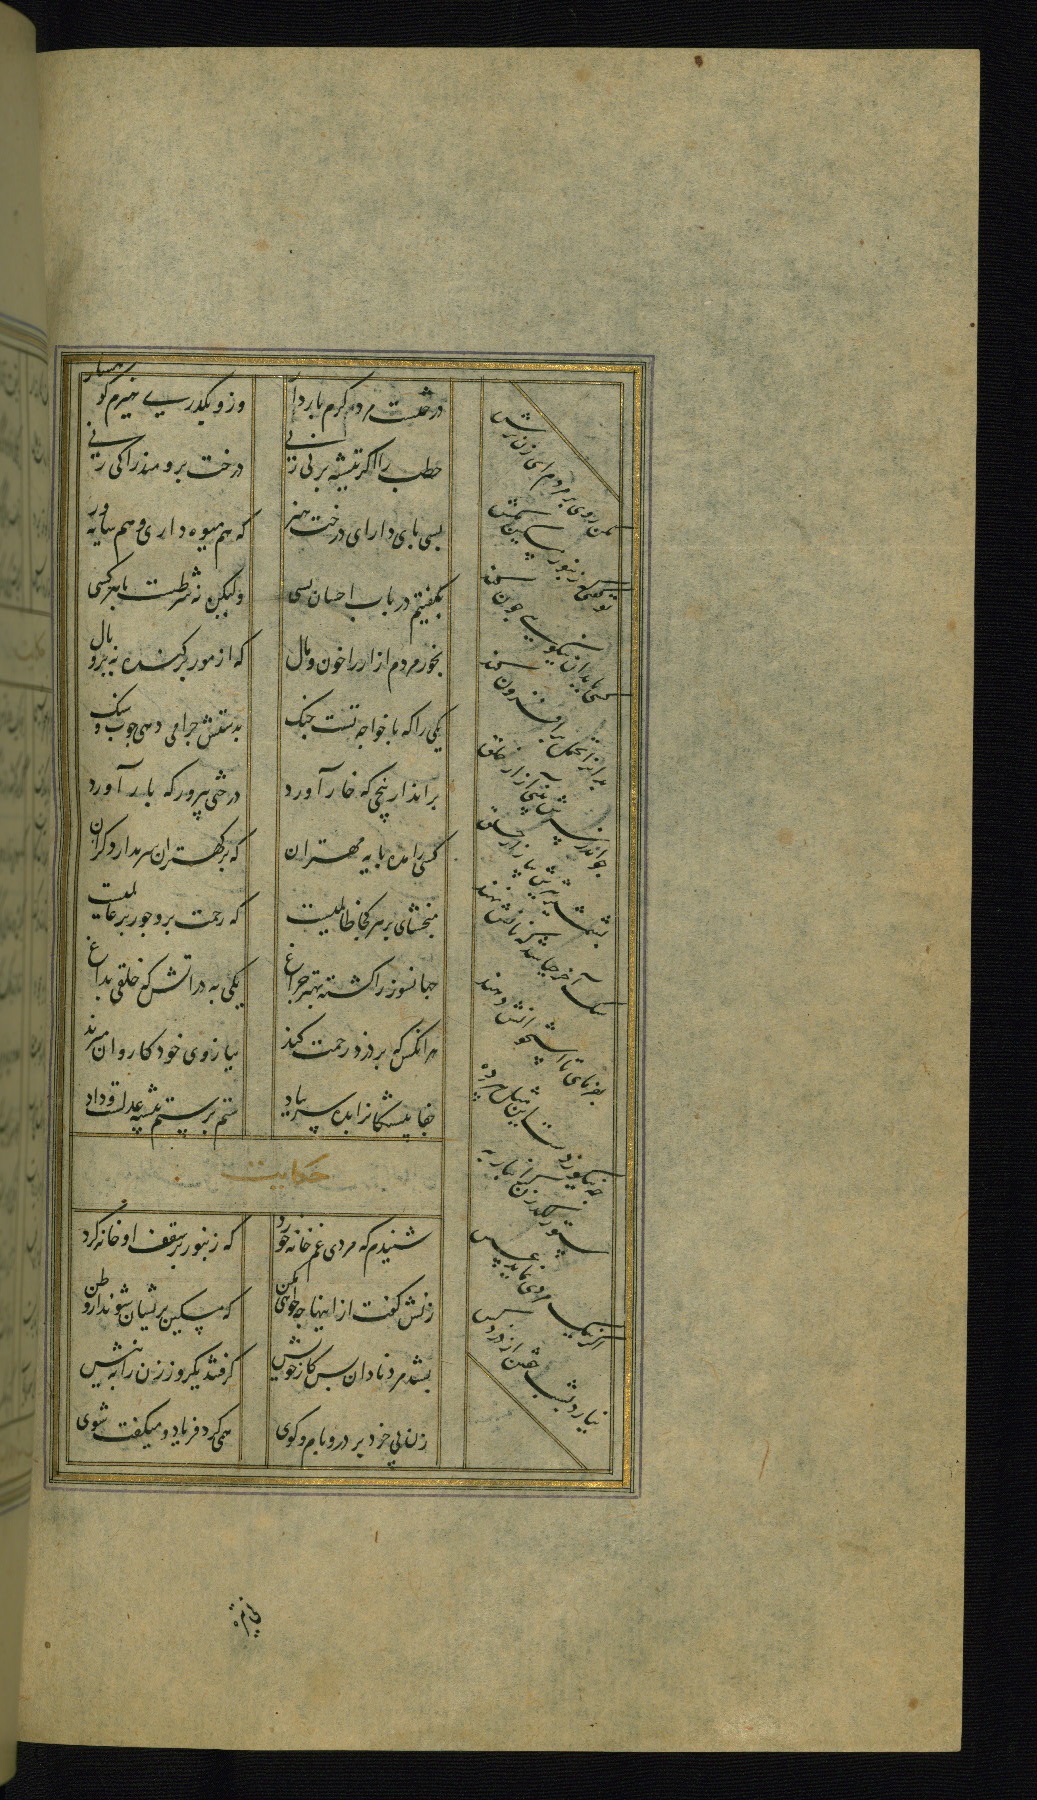 درختست مرد کرم باردار
وزو بگذری هیزم کوهسار
حطب را اگر تیشه بر پی زنی
درخت برومند را کی زنی
بسی بای دار ای درخت هنر
که هم میوه داری و هم سایه ور
بگفتیم در باب احسان بسی
ولیکن نه شرطست با هر کسی
بخور مردم ازار را خون و مال
که از مرغ بد کنده به پر و بال
یکی را که با خواجه تست جنک
بدستش چرا می دهی چوب و سنک
برانداز بیخی که خار آورد
درختی بپرور که بار آورد
کسی را بده بایه مهتران
که بر کهتران سر ندارد کران
مبخشای بر هر کجا ظالمیست
که رحمت برو جور بر عالمیست
جهانسوز را کشته بهتر چراغ
یکی به در اتش که خلقی بداغ
هر انکس که بر دزد رحمت کند
ببازوی خود کاروان میزند
جفا پیشکانرا بده سر بباد
ستم بر ستم پیشه عدلست و داد
حکایت
شنیدم که مردی غم خانه خورد
که زنبور بر سقف او خانه کرد
زنش کفت از اینها چه خواهی مکن
که مسکین پریشان شوند از وطن
بشد مرد نادان پس کار خویش
گرفتند یکروز زن را به نیش
زن بی خرد بر در و بام و کوی
همی کرد فریاد و میکفت شوی
مکن روی بر مردم ای زن ترش
تو کفتی که زنبور مسکین مکش
کسی با بدان نیکویی چون کند
بدانرا تحمل بد افزون کند
چو اندر سری بینی آزار خلق
بشمشیر تیزش بیازار حلق
سک آخر چه باشد که خوانش نهند
بفرمای تا استخوانش دهند
چه نیکو زدست این مثل پیر ده
ستور لکدزن کرانبار به
اکر نیک مردی نماید عسس
نیارد بشب خفتن از دزد کس